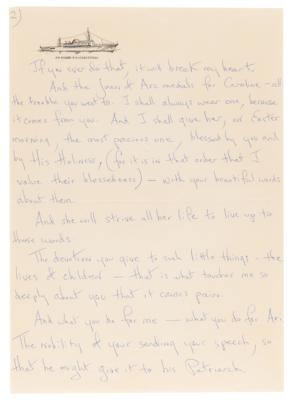 2)
If you ever do that, it will break my heart.
And the Joan of Arc medals for Caroline - all
the trouble you went to. I shall always wear one, because
it comes from you. And I shall give her, on Easter
morning, the most precious one, blessed by you and
by His Holiness, (for it is in that order that I
value their blessedness) - with your beautiful words
about them.
And she will strive all her life to live up to
those words.
The devotion you give to such little things - the
lives of children - that is what touches me so
deeply about you that it causes pain.
And what you do for me - what you do for Ari.
The nobility of your sending your speech, so
that he might give it to his Patriarch.